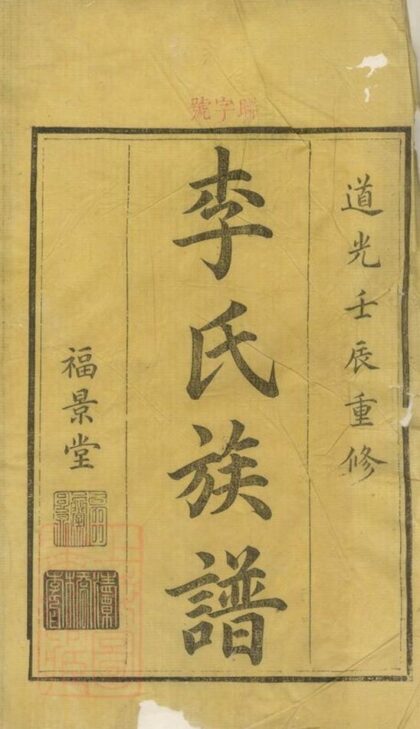 聯字號
道光壬辰重修
李氏族譜
福景堂